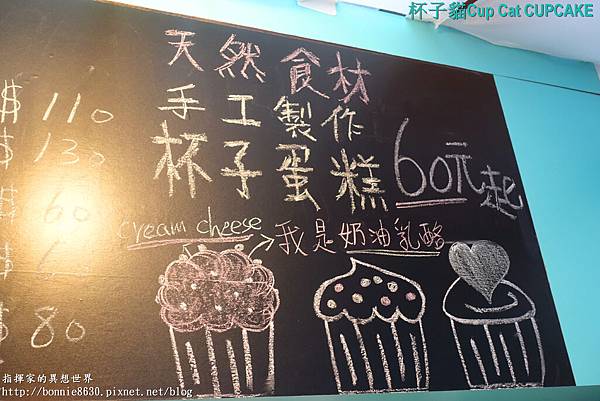 杯子貓Cup Cat CUPCAKE
天然食材
手工製作
杯子蛋糕 60元起
cream cheese
我是奶油乳酪
$110
$130
$60
$80
指揮家的異想世界
http://bonnie8630.pixnet.net/blog